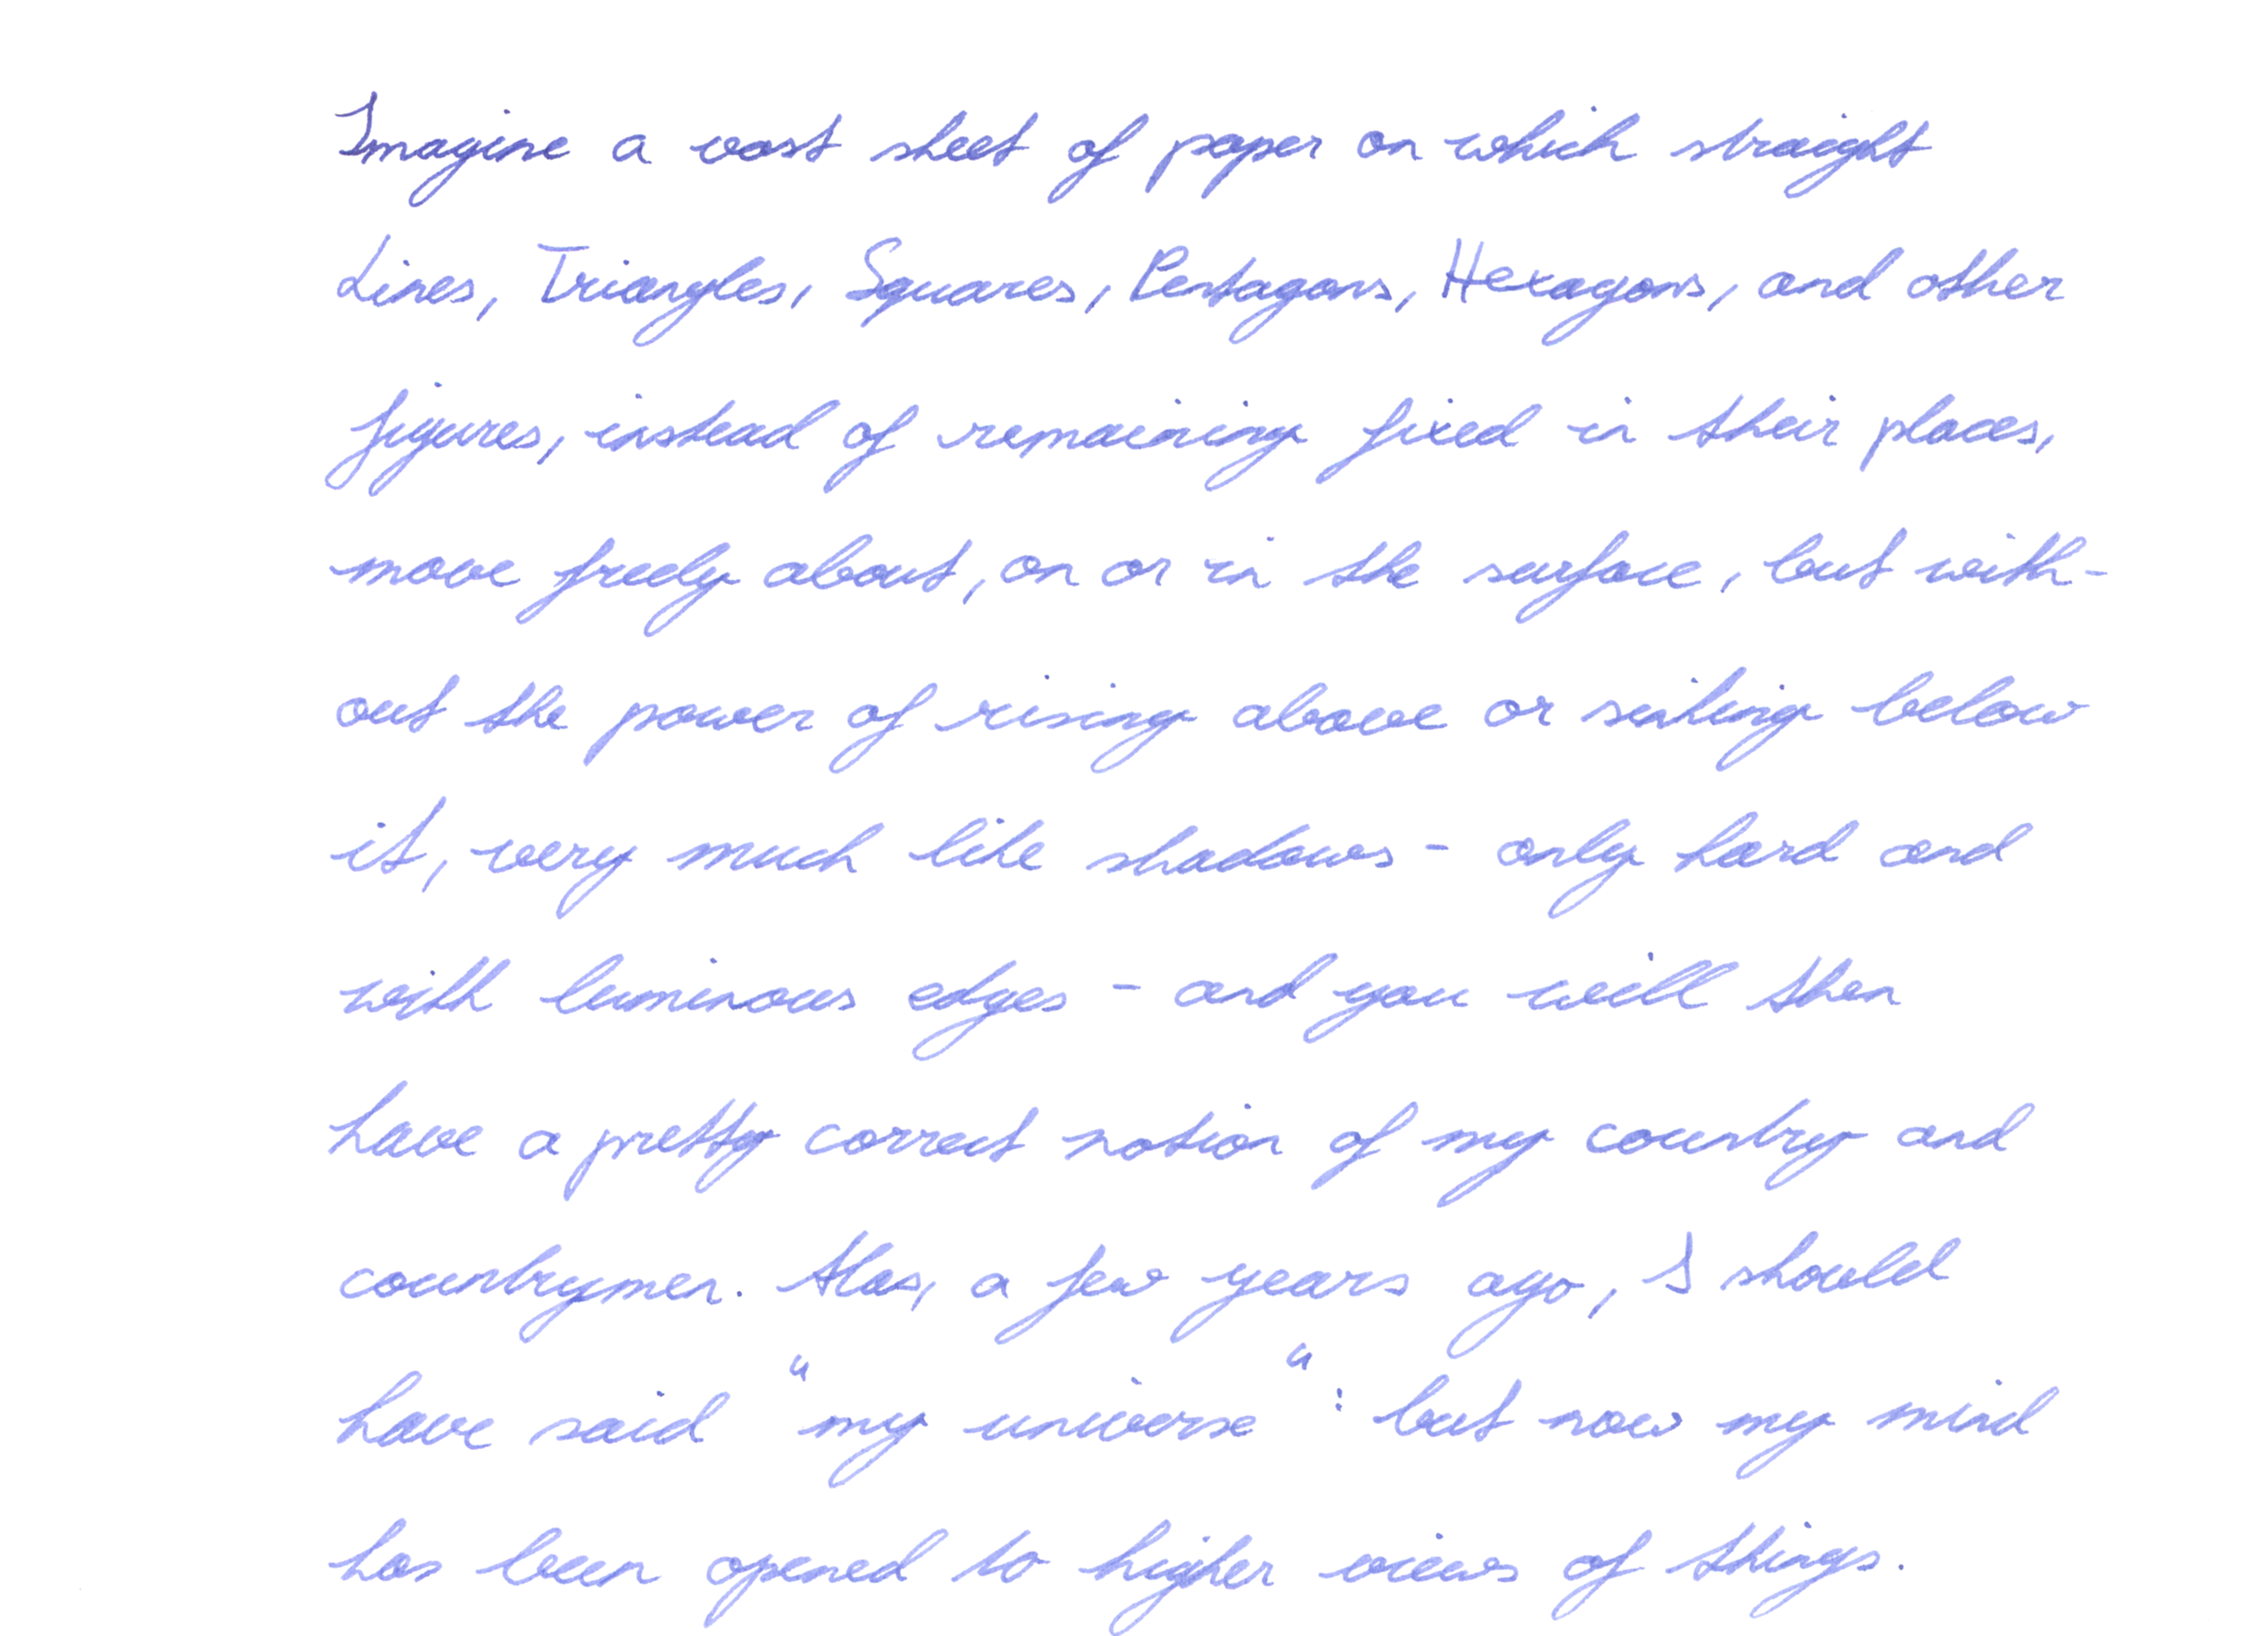 Imagine a vast sheet of paper on which straight
Lines, Triangles, Squares, Pentagons, Hexagons, and other
figures, instead of remaining fixed in their places,
move freely about, on or in the surface, but with-
out the power of rising above or sinking below
it, very much like shadows - only hard and
with luminous edges - and you will then
have a pretty correct notion of my country and
countrymen. Alas, a few years ago, I should
have said "my universe": but now my mind
has been opened to higher views of things.